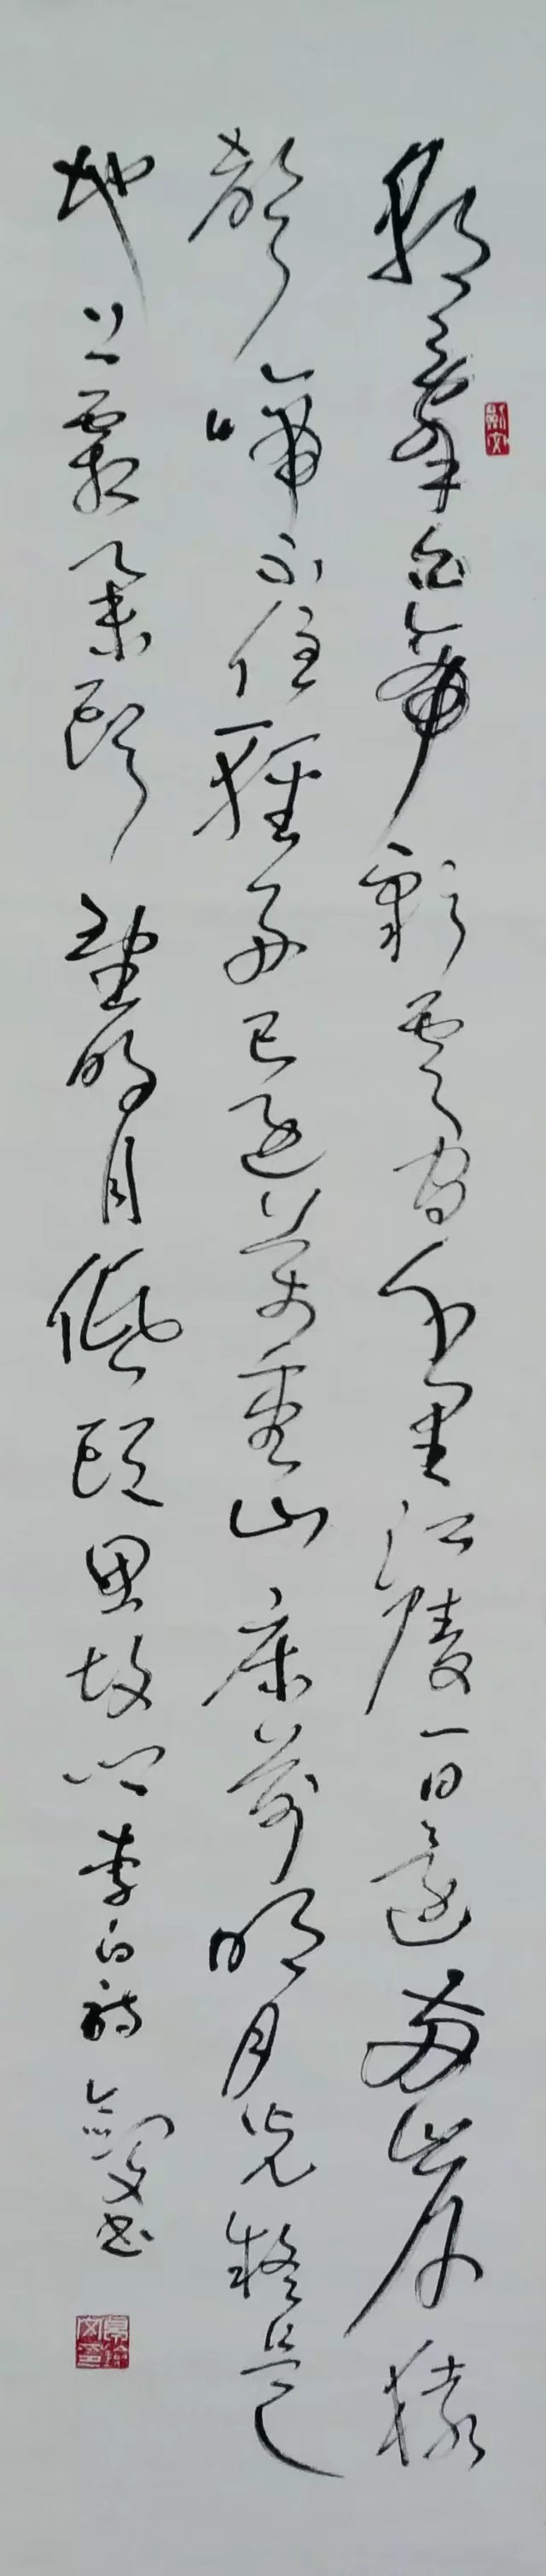 朝辞白帝彩云间千里江陵一日还两岸猿
声啼不住轻舟已过万重山床前明月光疑是
地上霜举头望明月低头思故乡李白诗剑文书